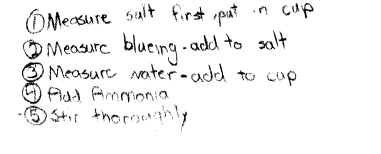 ① Measure salt first, put in cup
② Measure blueing - add to salt
③ Measure water - add to cup
④ Add Ammonia
⑤ Stir thoroughly